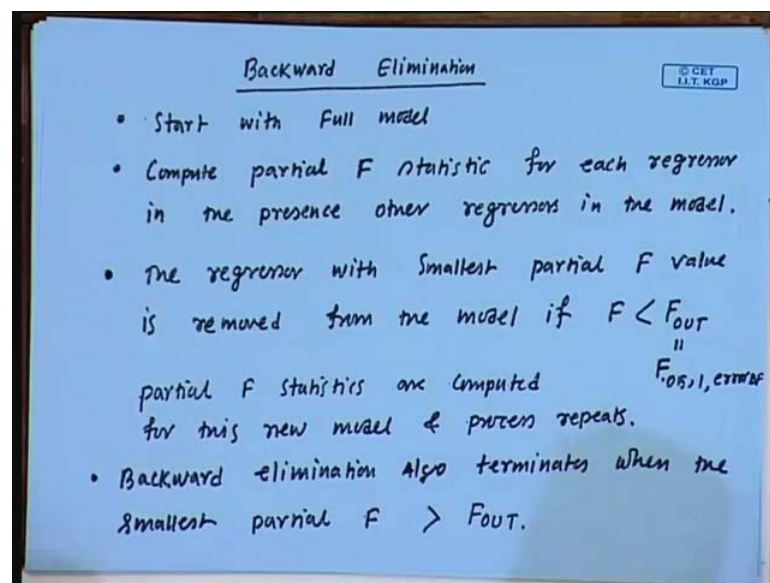 Backward Elimination
© CET
I.I.T. KGP
• Start with Full model
• Compute partial F statistic for each regressor
in the presence other regressors in the model.
• The regressor with Smallest partial F value
is removed from the model if F < F_OUT
"
F.05,1, error DF
partial F statistics are computed
for this new model & process repeats.
• Backward elimination Also terminates when the
smallest partial F > F_OUT.